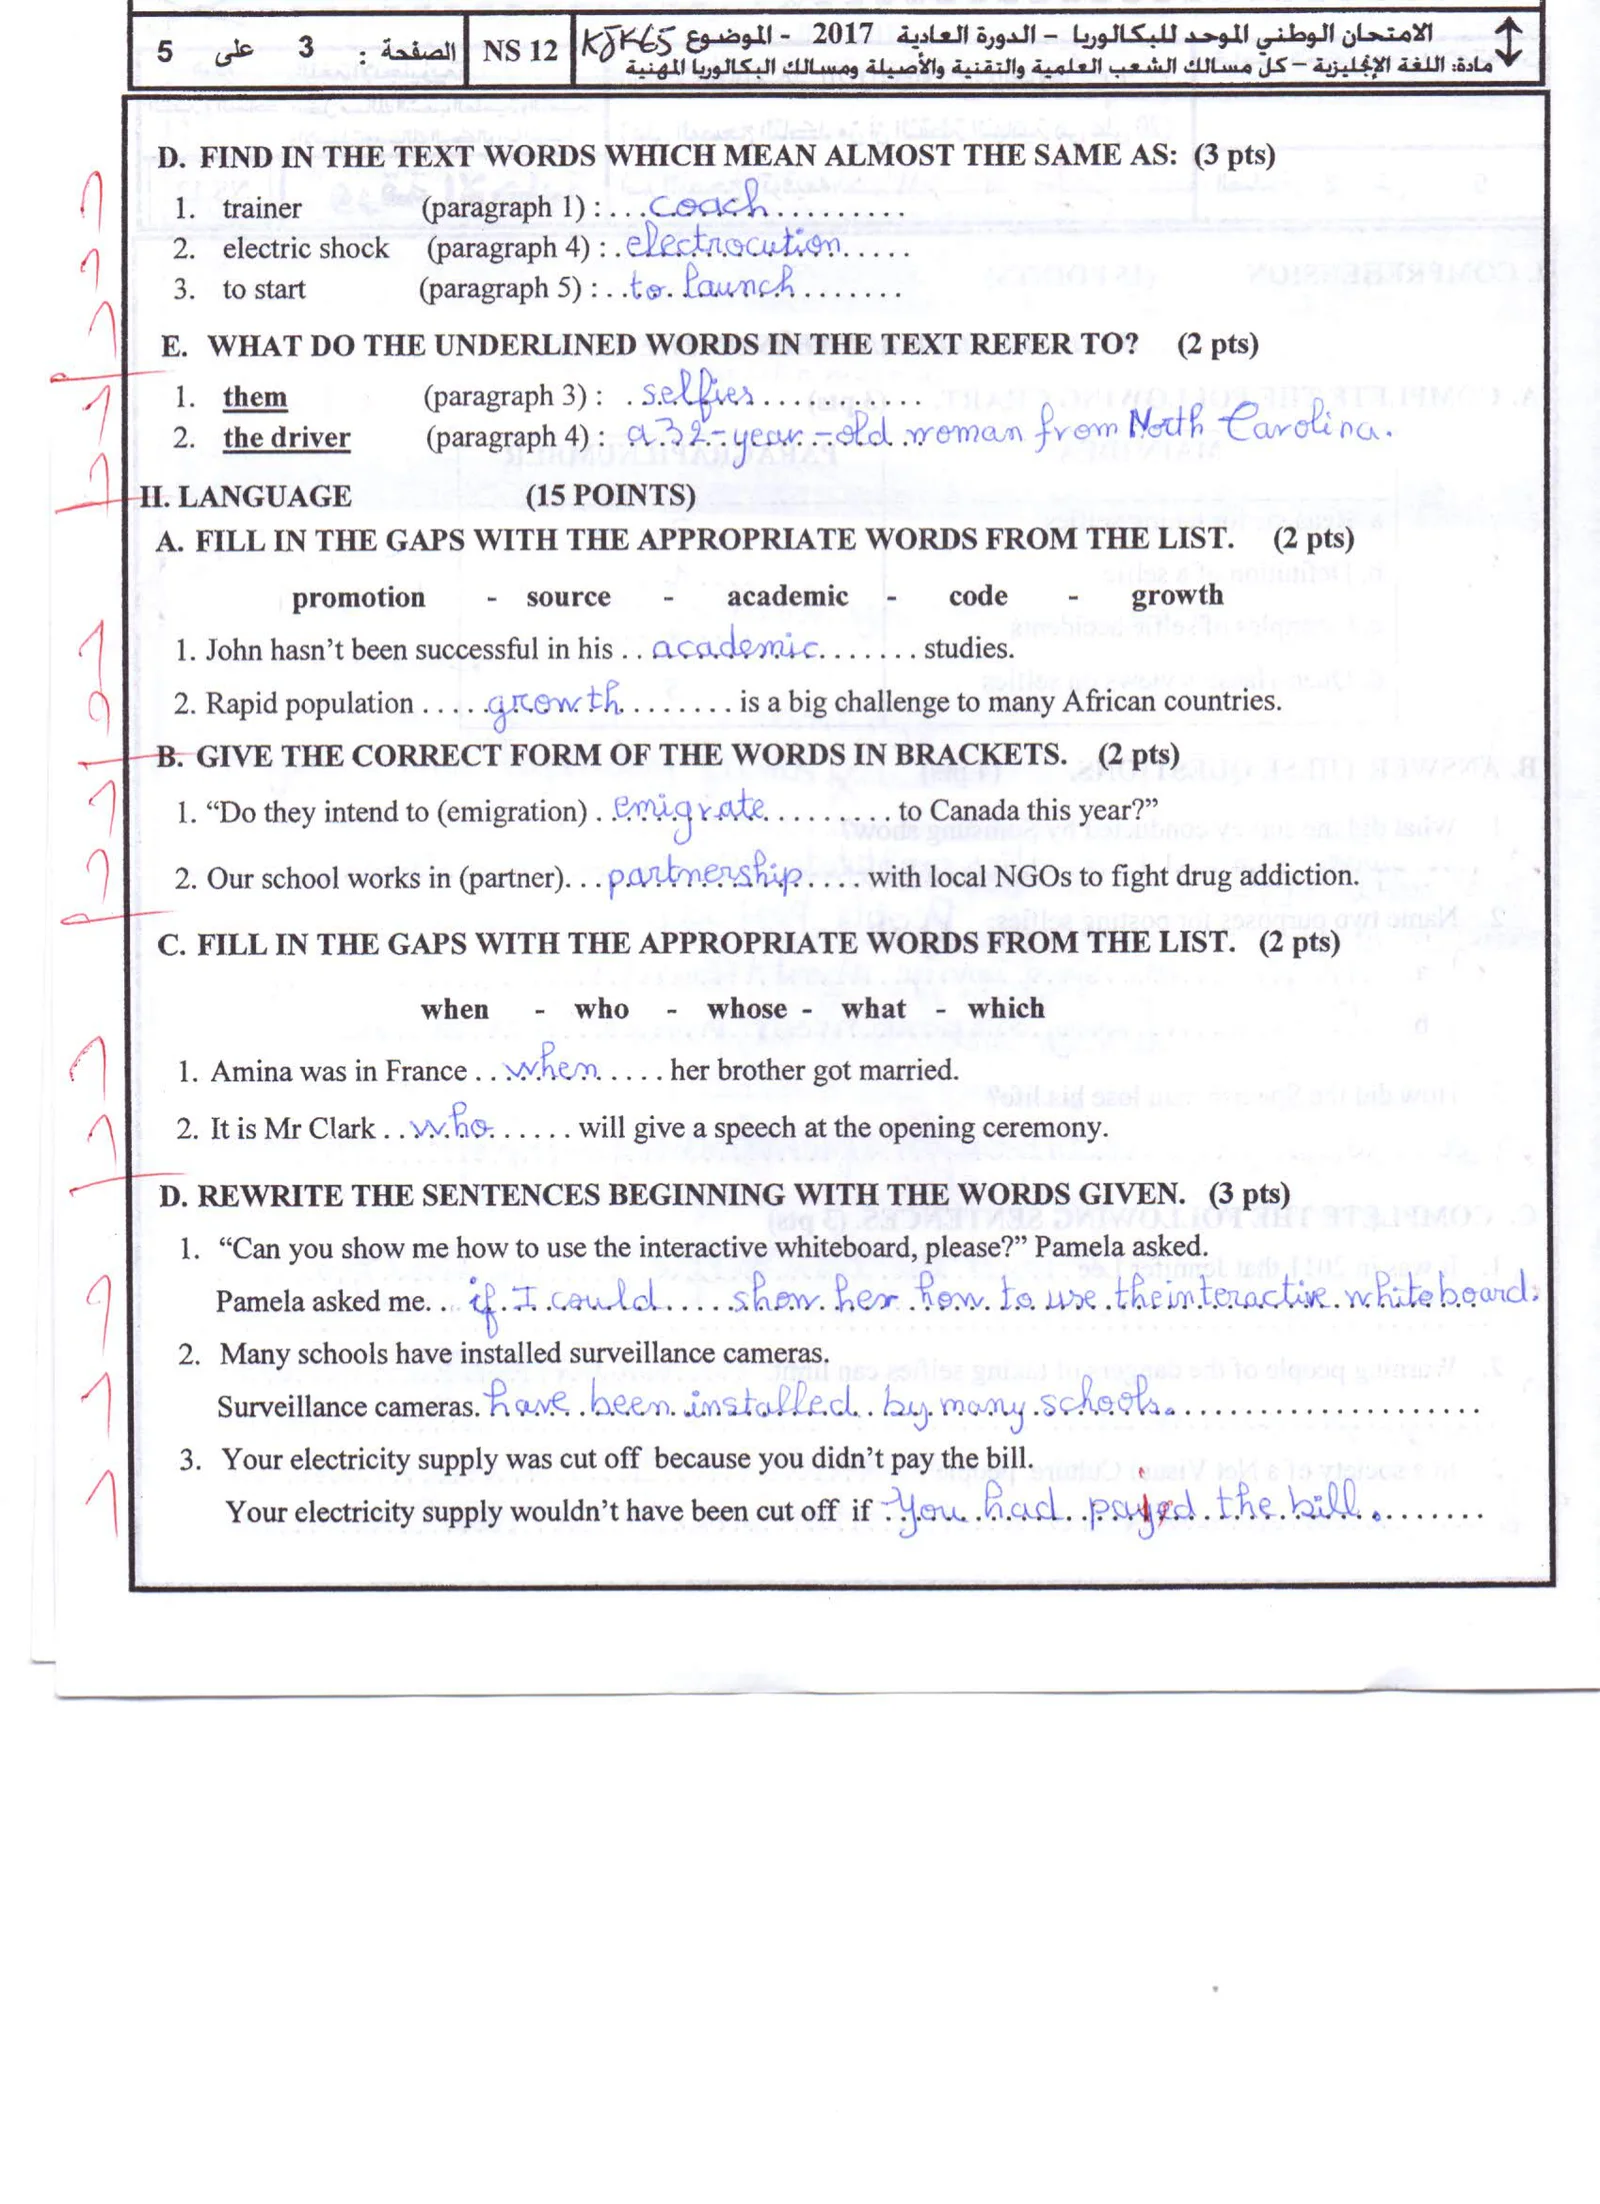 الامتحان الوطني الموحد للبكالوريا - الدورة العادية 2017 - الموضوع
مادة: اللغة الإنجليزية - كل مسالك الشعب العلمية والتقنية والأصيلة ومسالك البكالوريا المهنية
NS 12
الصفحة : 3 على 5
D. FIND IN THE TEXT WORDS WHICH MEAN ALMOST THE SAME AS: (3 pts)
1. trainer (paragraph 1) : ...coach.........
2. electric shock (paragraph 4) : .electrocution.....
3. to start (paragraph 5) : ..to launch.......
E. WHAT DO THE UNDERLINED WORDS IN THE TEXT REFER TO? (2 pts)
1. them (paragraph 3) : .selfies..........
2. the driver (paragraph 4) : a 32-year-old woman from North Carolina.
II. LANGUAGE (15 POINTS)
A. FILL IN THE GAPS WITH THE APPROPRIATE WORDS FROM THE LIST. (2 pts)
promotion - source - academic - code - growth
1. John hasn't been successful in his ..academic....... studies.
2. Rapid population .....growth........ is a big challenge to many African countries.
B. GIVE THE CORRECT FORM OF THE WORDS IN BRACKETS. (2 pts)
1. “Do they intend to (emigration) .emigrate......... to Canada this year?”
2. Our school works in (partner)...partnership.... with local NGOs to fight drug addiction.
C. FILL IN THE GAPS WITH THE APPROPRIATE WORDS FROM THE LIST. (2 pts)
when - who - whose - what - which
1. Amina was in France ..when..... her brother got married.
2. It is Mr Clark ..who...... will give a speech at the opening ceremony.
D. REWRITE THE SENTENCES BEGINNING WITH THE WORDS GIVEN. (3 pts)
1. “Can you show me how to use the interactive whiteboard, please?” Pamela asked.
Pamela asked me... if I could ..... show her how to use the interactive whiteboard.
2. Many schools have installed surveillance cameras.
Surveillance cameras. have been installed by many schools......................
3. Your electricity supply was cut off because you didn't pay the bill.
Your electricity supply wouldn't have been cut off if You had payed the bill.........